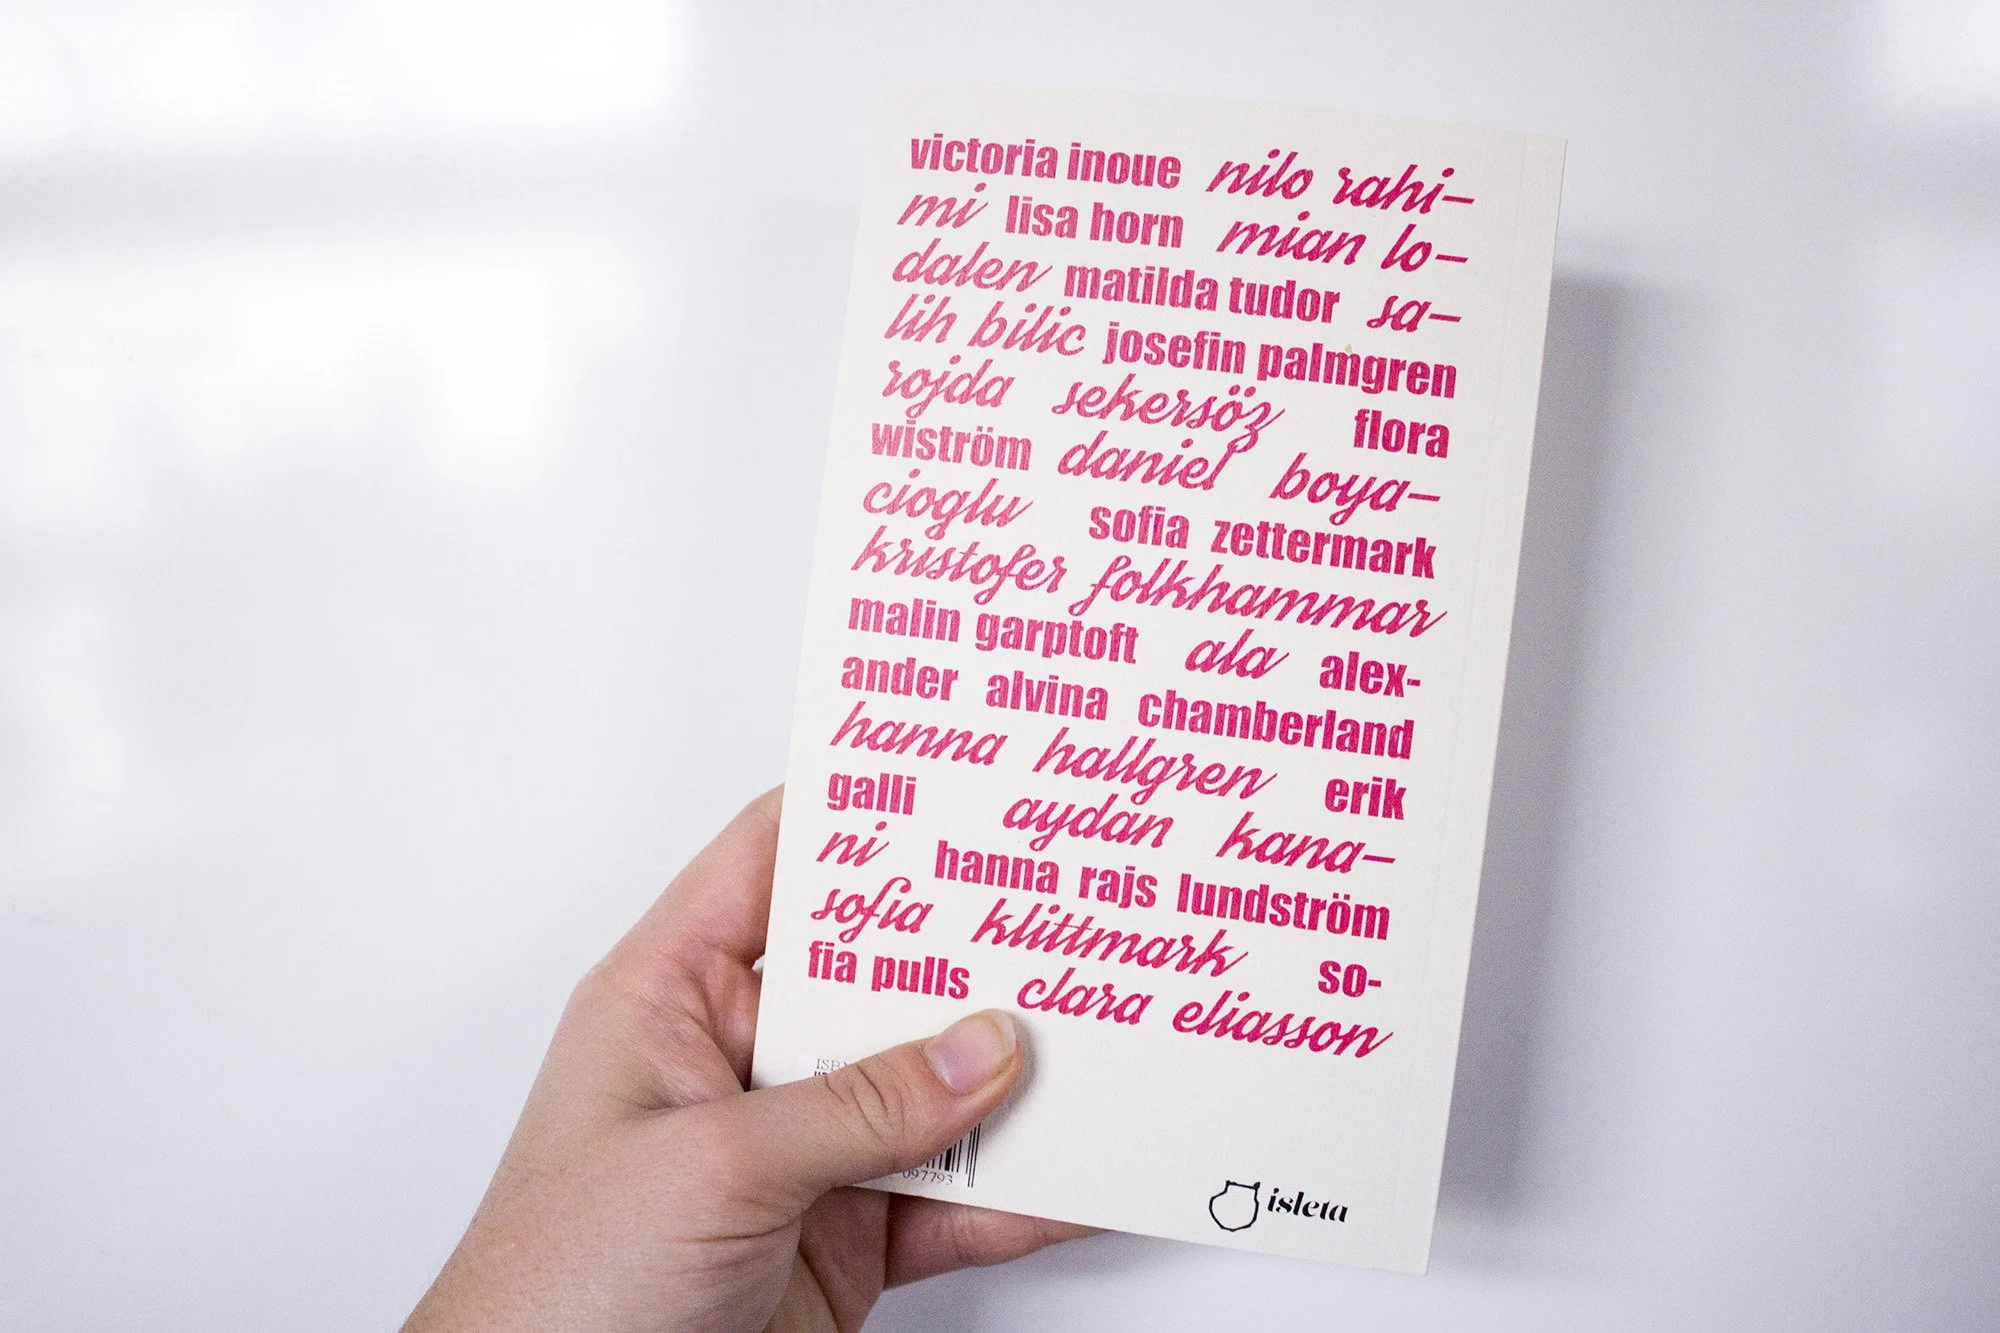 victoria inoue nilo rahi–
mi lisa horn mian lo–
dalen matilda tudor sa–
lih bilic josefin palmgren
rojda sekersöz flora
wiström daniel boya–
cioglu sofia zettermark
kristofer folkhammar
malin garptoft ala alex-
ander alvina chamberland
hanna hallgren erik
galli aydan kana–
ni hanna rajs lundström
sofia klittmark so-
fia pulls clara eliasson
097793
isleta